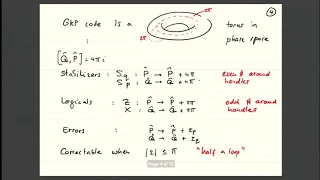 4
GKP code is a torus in phase space
2π
2π
[Q̂, P̂] = 4πi
Stabilizers : S_q : P̂ → P̂ + 4π even # around
S_p : Q̂ → Q̂ + 4π handles
Logicals : Z : P̂ → P̂ + 2π odd # around
X : Q̂ → Q̂ + 2π handles
Errors : P̂ → P̂ + Σ_p
Q̂ → Q̂ + Σ_q
Correctable when |Σ| ≤ π "half a loop"